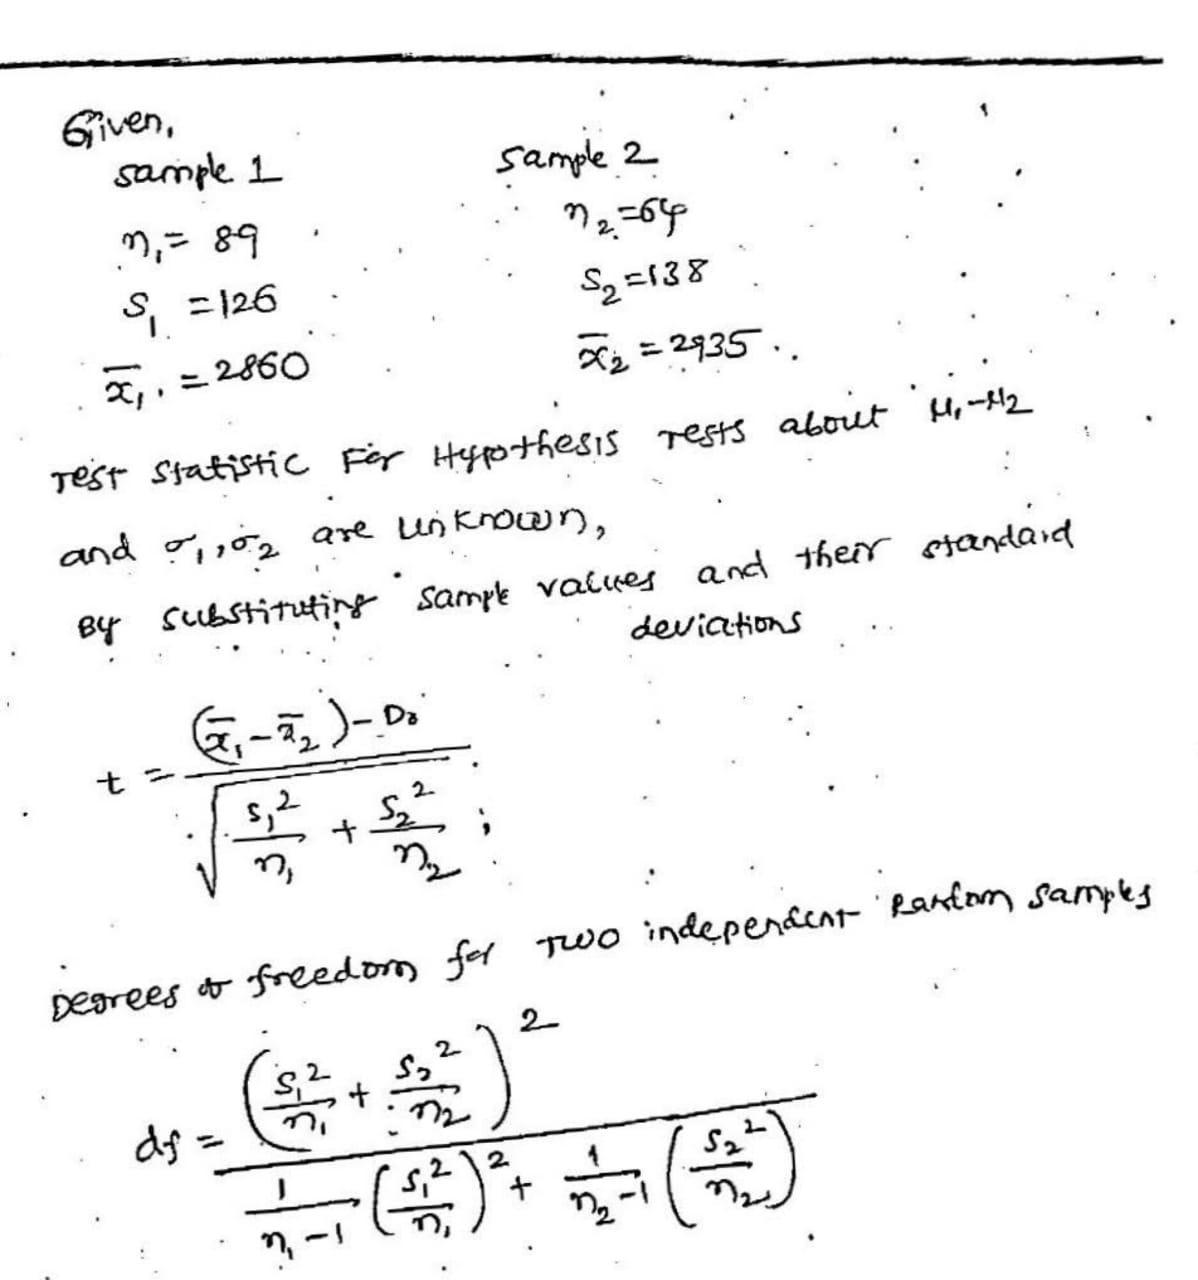 Given,
sample 1 sample 2
n₁ = 89 n₂ = 64
S₁ = 126 S₂ = 138
x̄₁ = 2860 x̄₂ = 2935
Test Statistic For Hypothesis Tests about μ₁-μ₂
and σ₁, σ₂ are unknown,
By substituting sample values and their standard
deviations
t = ((x̄₁ - x̄₂) - D₀) / √(s₁²/n₁ + s₂²/n₂) ;
Degrees of freedom for Two independent Random samples
df = (s₁²/n₁ + s₂²/n₂)² / (1/(n₁-1) (s₁²/n₁)² + 1/(n₂-1) (s₂²/n₂))